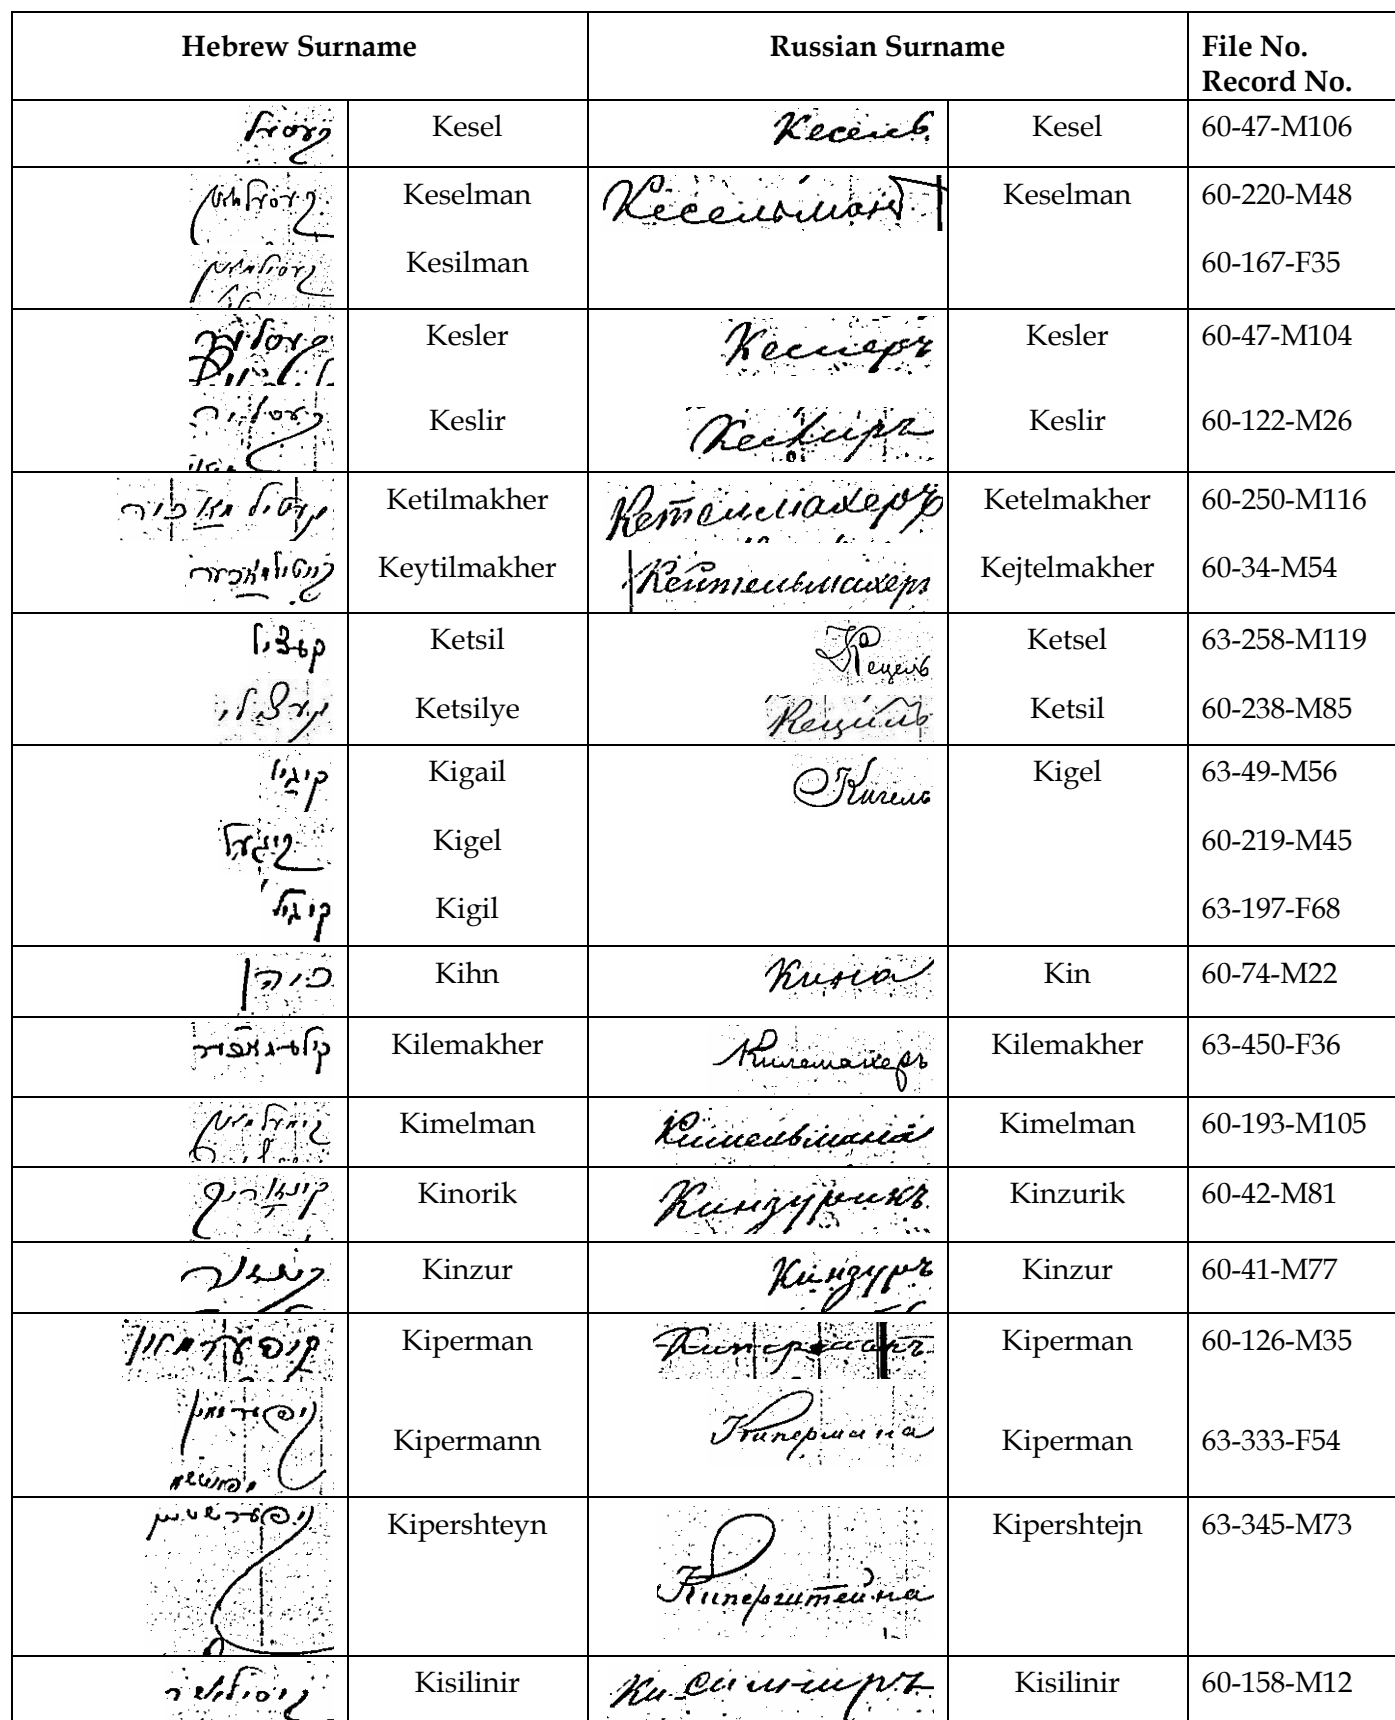 Hebrew Surname Russian Surname File No.
Record No.
קעסעל Kesel Кесель Kesel 60-47-M106
קעסעלמאן Keselman Кесельман Keselman 60-220-M48
Kesilman 60-167-F35
קעסלער Kesler Кеслеръ Kesler 60-47-M104
קעסליר Keslir Кеслиръ Keslir 60-122-M26
Ketilmakher Кетельмахеръ Ketelmakher 60-250-M116
קייטילמאכער Keytilmakher Кейтельмахеръ Kejtelmakher 60-34-M54
קעציל Ketsil Кецель Ketsel 63-258-M119
Ketsilye Кециль Ketsil 60-238-M85
Kigail Кигель Kigel 63-49-M56
קיגעל Kigel 60-219-M45
קיגיל Kigil 63-197-F68
כיהן Kihn Кина Kin 60-74-M22
Kilemakher Килемахеръ Kilemakher 63-450-F36
קימעלמאן Kimelman Кимельмана Kimelman 60-193-M105
קינאריק Kinorik Кинзурикъ Kinzurik 60-42-M81
Kinzur Кинзуръ Kinzur 60-41-M77
קיפערמאן Kiperman Киперманъ Kiperman 60-126-M35
Kipermann Кипермана Kiperman 63-333-F54
קיפערשטיין Kipershteyn Киперштейна Kipershtejn 63-345-M73
קיסיליניר Kisilinir Кисилиниръ Kisilinir 60-158-M12